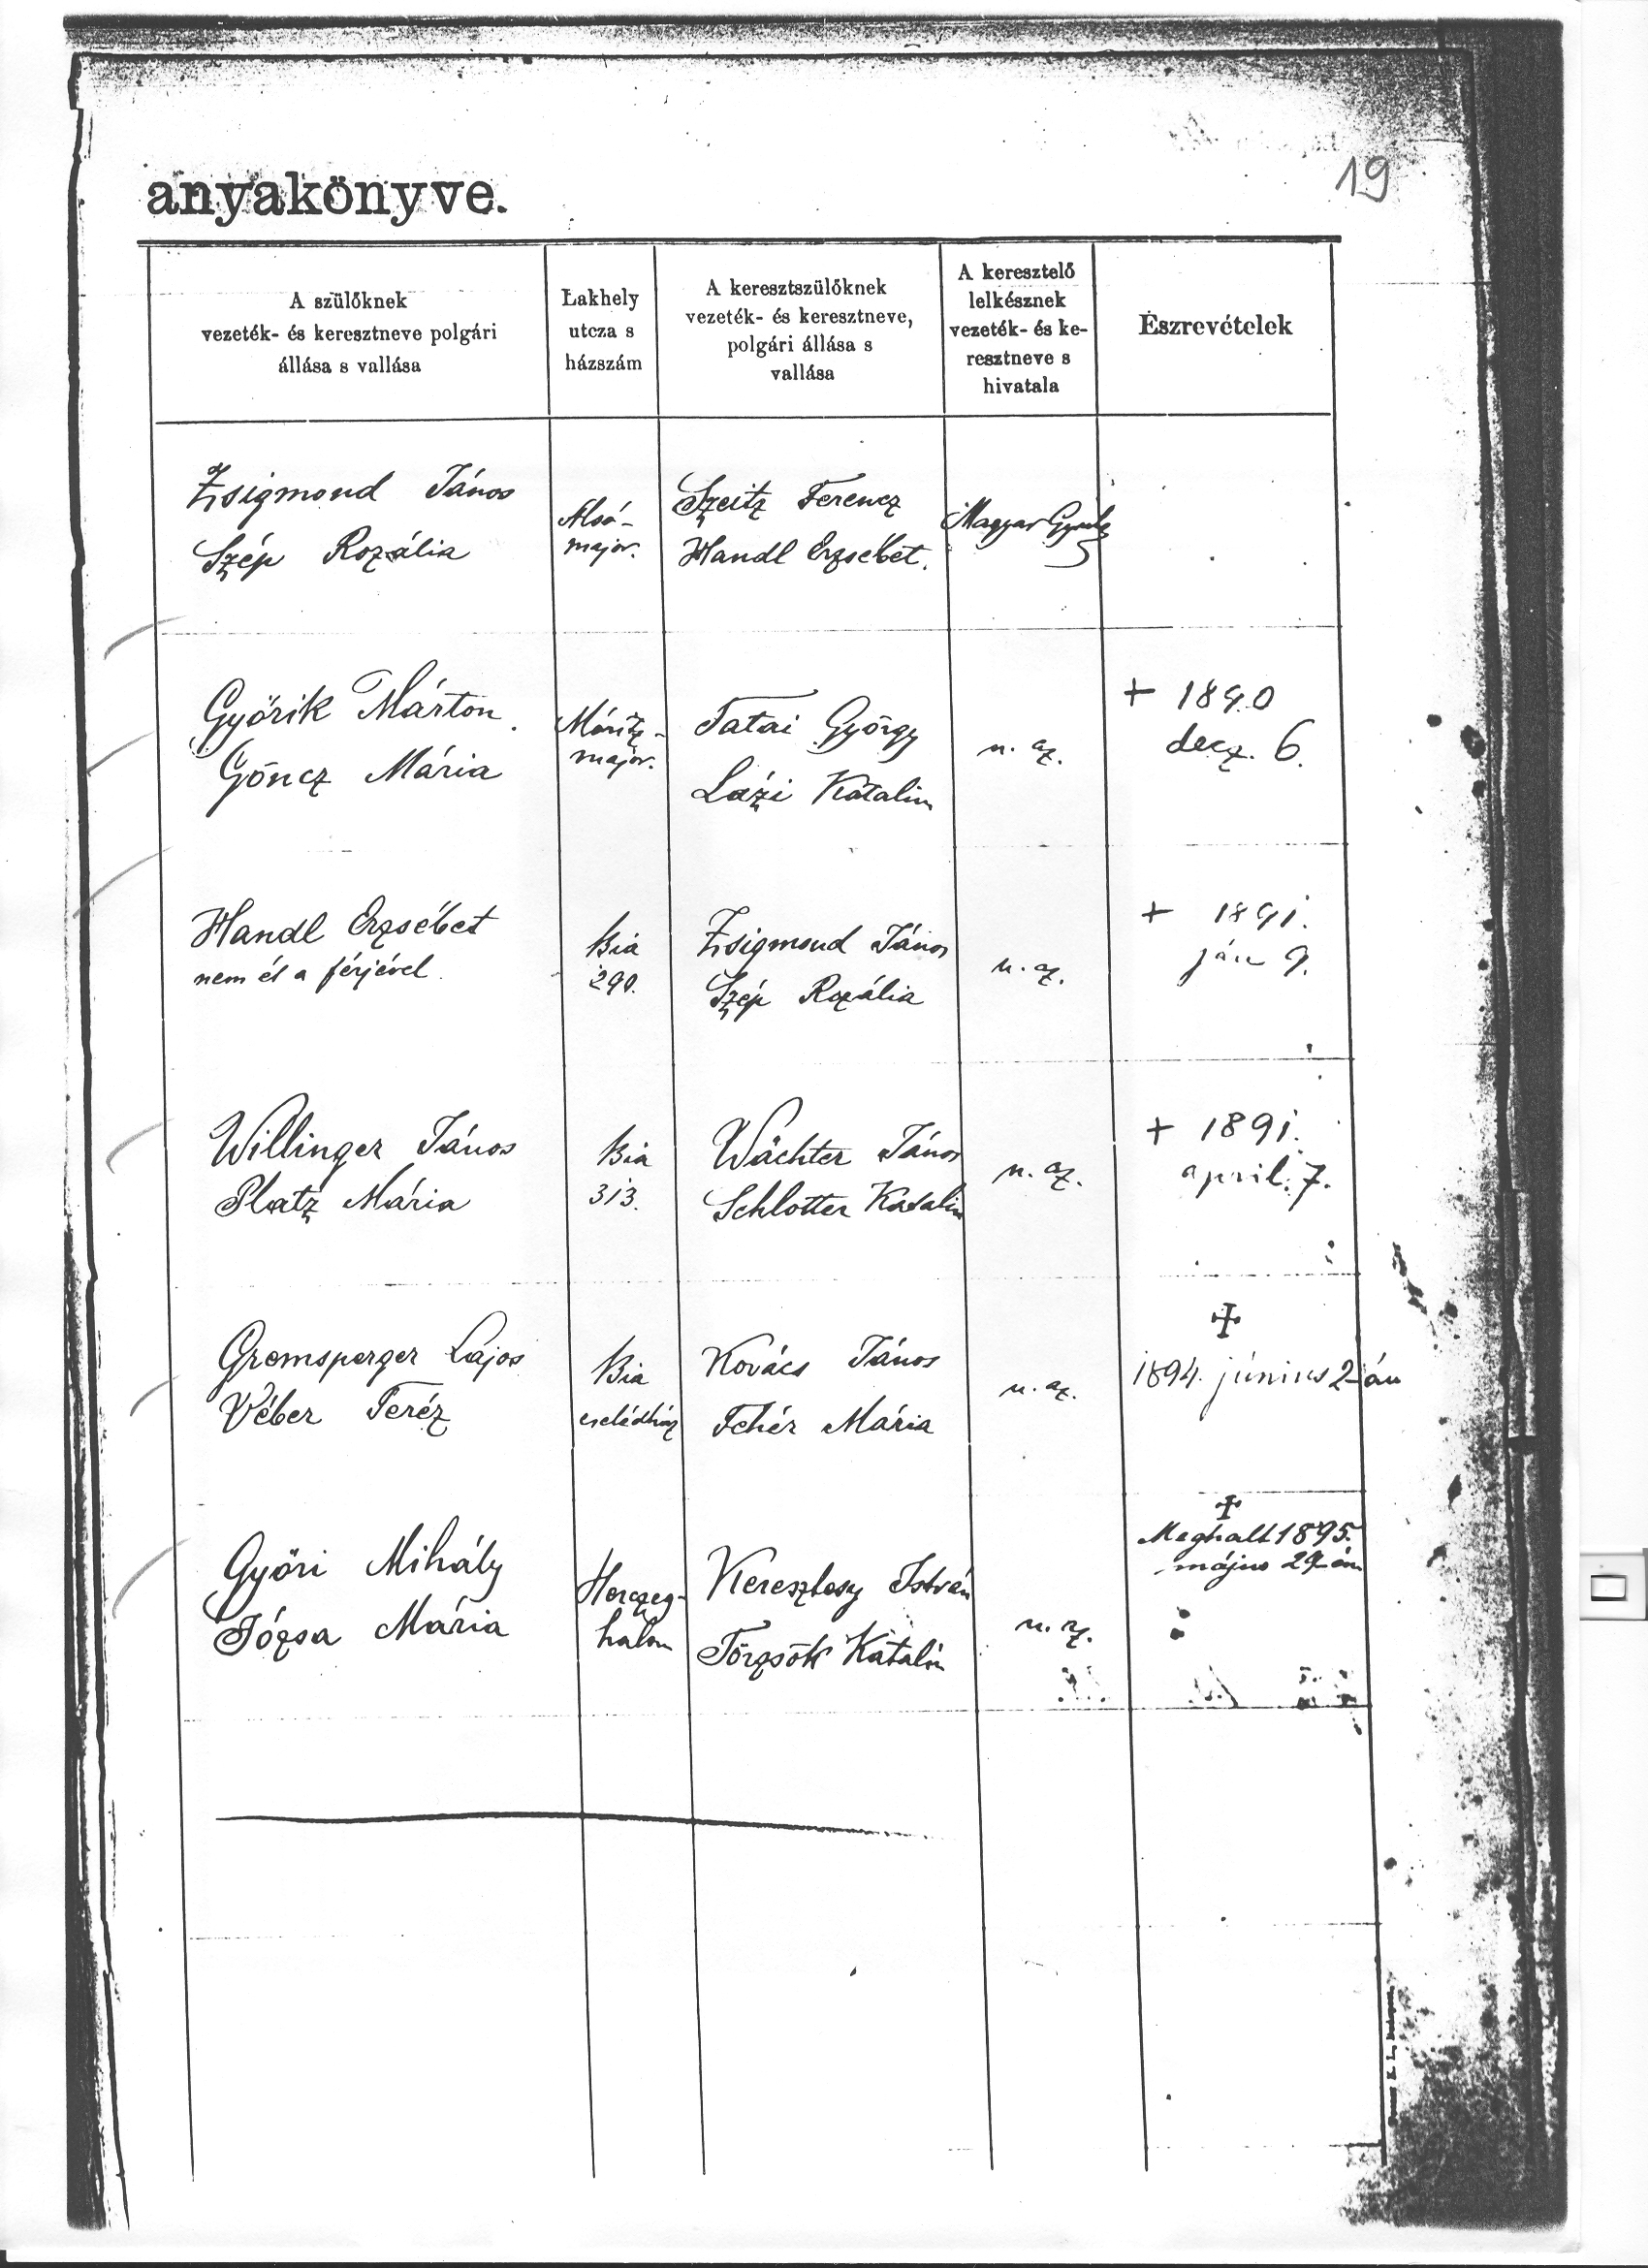 19
anyakönyve.
A szülőknek
vezeték- és keresztneve polgári
állása s vallása
Lakhely
utcza s
házszám
A keresztszülőknek
vezeték- és keresztneve,
polgári állása s
vallása
A keresztelő
lelkésznek
vezeték- és ke-
resztneve s
hivatala
Észrevételek
Zsigmond János
Szép Rozália
Alsó-
major.
Szeitz Ferencz
Handl Erzsébet.
Magyar
Győrik Márton
Göncz Mária
Móritz-
major.
Tatai György
Lázi Katalin
u. az.
+ 1890
decz. 6.
Handl Erzsébet
nem él a férjével
Bia
290.
Zsigmond János
Szép Rozália
u. az.
+ 1891.
ján 9.
Willinger János
Platz Mária
Bia
313.
Wächter János
Schlotter Katalin
u. az.
+ 1891.
april. 7.
Gremsperger Lajos
Véber Teréz
Bia
cselédház
Kovács János
Fehér Mária
u. az.
1894. június 2-án
Győri Mihály
Józsa Mária
Herczeg-
halom
Keresztesy István
Törzsök Katalin
u. az.
Meghalt 1895.
május 29-én